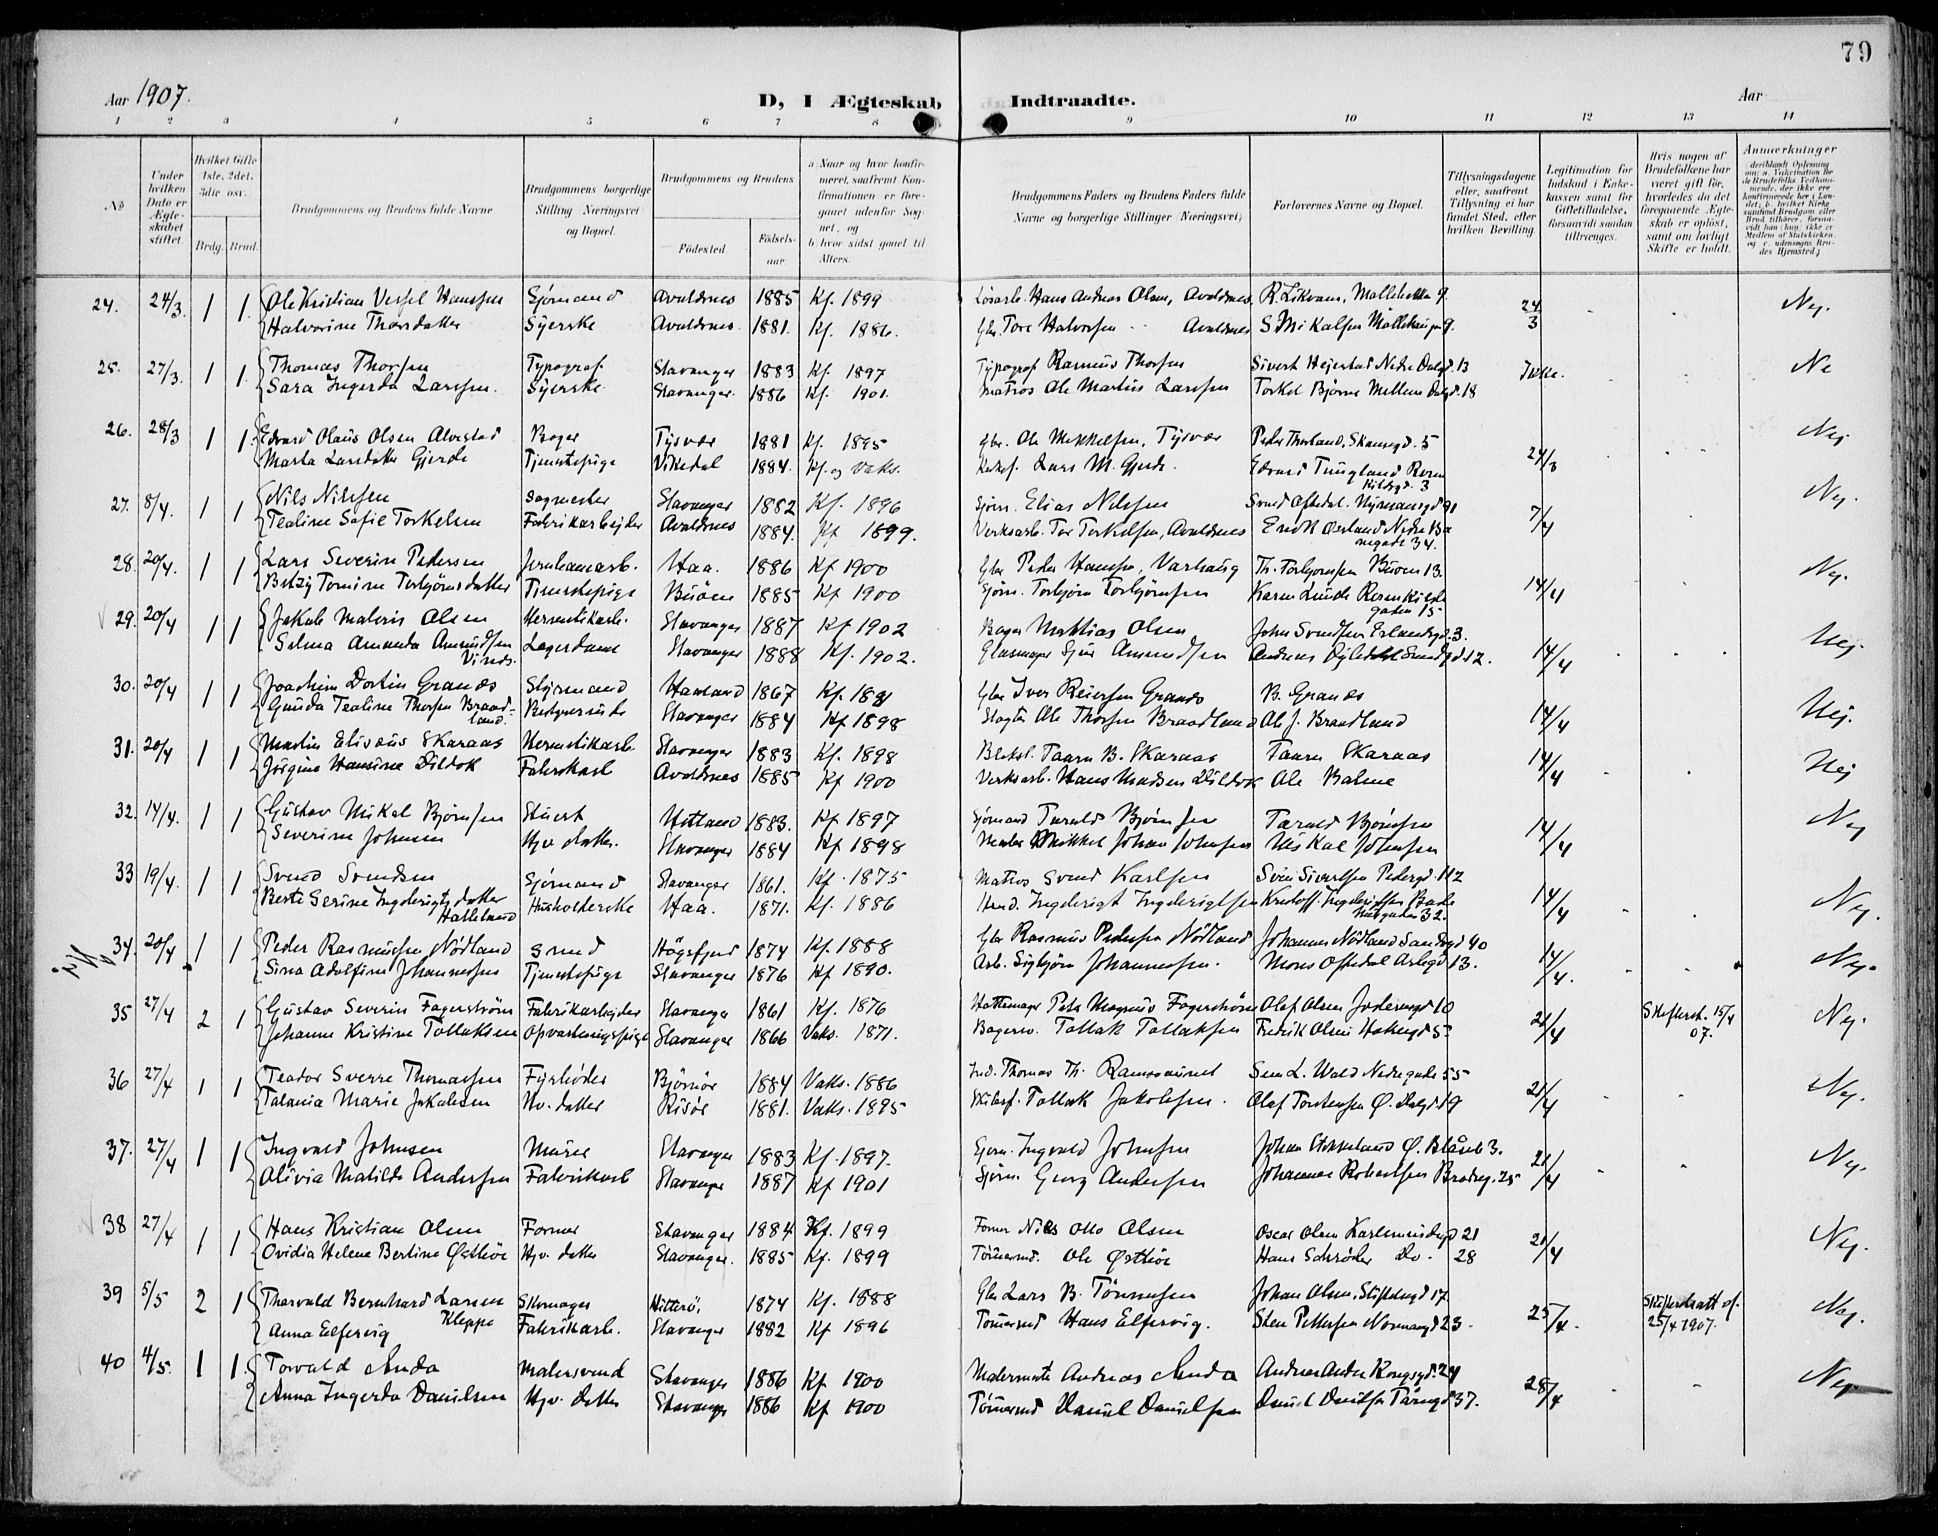 79
Aar 1907.
D, I Ægteskab Indtraadte.
Aar
1 2 3 4 5 6 7 8 9 10 11 12 13 14
No
Under hvilken Dato er Ægteskabet stiftet.
Hvilket Gifte 1ste, 2det, 3die osv.
Brdg. Brud.
Brudgommens og Brudens fulde Navne
Brudgommens borgerlige Stilling Næringsvei og Bopæl.
Brudgommens og Brudens
Fødested. Fødselsaar.
a Naar og hvor konfirmeret, saafremt Konfirmationen er foregaaet udenfor Sognet, og
b hvor sidst gaaet til Alters.
Brudgommens Faders og Brudens Faders fulde Navne og borgerlige Stillinger Næringsvei)
Forlovernes Navne og Bopæl.
Tillysningsdagene eller, saafremt Tillysning ei har fundet Sted, efter hvilken Bevilling.
Legitimation for Indskud i Enkekassen samt for Giftetilladelse, forsaavidt saadan tiltrænges.
Hvis nogen af Brudefolkene har været gift før, hvorledes da det foregaaende Ægteskab er opløst, samt om lovligt Skifte er holdt.
Anmærkninger
24. 24/3 1 1 Ole Kristian Hanssen Sjømand Avaldsnes 1885 Kf. 1899 Løsarb. Hans Andreas Olsen, Avaldsnes R. Likvam, Møllebakken 9. 24/3 Nej.
Halvorine Thorsdatter Syerske Avaldsnes 1881. Kf. 1886. Gbr. Tore Halvorsen Avaldsnes S. Mikalsen Møllehaugen 9.
25. 27/3. 1 1 Thomas Thorsen Typograf Stavanger 1883 Kf. 1897 Typograf Rasmus Thorsen Sivert Hejestad Nedre Dalgd. 13 Ikke. Ne
Sara Ingerda Larssen. Syerske Stavanger. 1886 Kf. 1901. Matros Ole Martin Larssen Torkel Bjørne Mellem Dalgd. 18
26. 28/3 1 1. Edvard Olaus Olsen Alvestad Bager Tysvær 1881 Kf. 1895 Gbr. Ole Mikkelsen, Tysvær Peder Thorland, Skansegd. 5 24/3 Nej
Marta Larsdatter Gjerde Tjenestepige Vikedal 1884. Kf. og vaks. Lars M. Gjerde. Edvard Tungland Rosenkildegd. 3
27. 8/4. 1 1 Nils Nilssen Sagmester Stavanger 1882 Kf. 1896 Sjøm. Elias Nilssen Svend Oftedal. Nymansgd 91 7/4 Nej.
Tealine Sofie Torkelsen Fabrikarbejder Avaldsnes 1884. Kf 1899. Verksarb. Tor Torkelsen, Avaldsnes Erik Øverland Nedre Banegade 34.
28. 20/4. 1 1 Lars Severin Pedersen Jernbanearb. Haa. 1886 Kf 1900 Gbr Peder Hansen, Varhaug Th. Torbjørnsen Buøen 13. 14/4 Nej.
Betzy Tomine Torbjørnsdatter Tjenestepige Buøen 1885 Kf 1900 Sjøm. Torbjørn Torbjørnsen Karen Lunde Rosenkildegaden 15
29. 20/4 1 1 Jakob Malvin Olsen Hermetikarb. Stavanger 1887 Kf 1902 Bager Mathias Olsen John Svendsen Erlandsgd. 3. 14/4 Nej.
Selma Amanda Amundsen Lagerdame Stavanger 1888 Kf. 1902. Glasmager Sjur Amundsen Andreas 12.
30. 20/4 1 1 Joachim Dortin Granes Styrmand Haaland 1867 Kf. 1881 Gbr Iver Reiersen Granes B. Granes 14/4 Nej.
Gunda Tealine Thorsen Braadland. Bestyrerinde Stavanger 1884 Kf 1898 Slagter Ole Thorsen Braadland Ole J. Braadland
31. 20/4 1 1 Martin Eliseus Skaraas Hermetikarb. Stavanger 1883 Kf. 1898 Bleksl. Taarn B. Skaraas Taarn Skaraas 14/4 Nej
Jørgine Hansine Vildok Fabrikarb Avaldsnes 1885 Kf 1900 Verksarb. Hans Madsen Vildok Ole Balme
32. 14/4. 1 1 Gustav Mikal Bjørnsen Stuert Hetland 1883. Kf 1897 Sjømand Tarald Bjørnsen Tarald Bjørnsen 14/4 Nej
Severine Johnsen Hjv. datter. Stavanger 1884 Kf 1898 Mikkel Johan Johnsen Mikal Johnsen
33 19/4. 1 1 Svend Svendsen Sjømand Stavanger 1861. Kf. 1875 Matros Svend Karlsen Sven Sivertsen Pedersgd. 112 14/4 Nej.
Berte Serine Ingebrigtsdatter Hatteland Husholderske Haa. 1871. Kf. 1886 Ingebrigt Ingebrigtsen Kristoff. Ingebrigtsen Badehusgaden 32.
34. 20/4 1 1 Peder Rasmussen Nødland Smed Høgsfjord 1874 Kf. 1888 Gbr Rasmus Pedersen Nødland Johannes Nødland Sandsgd 40 14/4. Nej.
Sina Adolfine Johannessen Tjenestepige Stavanger 1876 Kf 1890. Arb. Sigbjørn Johannessen. Mons Oftedal Asbgd 13.
35 27/4 2 1 Gustav Severin Fagerstrøm Fabrikarbejder Stavanger 1861 Kf. 1876 Hattemager Peter Magnus Fagerstrøm Olaf Olsen Jorenegd 10 21/4 Skifterk. 15/4 07. Nej.
Johanne Kristine Tollaksen Opvartningspige Stavanger 1866 Vaks. 1871. Bagersv. Tollak Tollaksen Fredrik Olsen Hakegd 53
36 27/4 1 1 Teodor Sverre Thomassen Fyrbøder Bjørnør 1884 Vaks. 1886 Ind. Thomas Th. Ramsøsund Sem L. Wold Nedregade 55 21/4 Nej.
Talania Marie Jakobsen Hv. datter Risør 1881. Vaks. 1895 Tollak Jakobsen. Olaf Torstensen Ø. Dalgd. 19
37. 27/4 1 1 Ingvald Johnsen Murer Stavanger 1883 Kf. 1897. Sjøm. Ingvald Johnsen Johan Stokkeland Ø. Blåsenb. 3. 21/4 Nej.
Olivia Matilde Andersen Fabrikarb Stavanger 1887 Kf 1901 Sjøm. Georg Andersen Johannes Robertsen Bradreg. 25
38 27/4 1 1 Hans Kristian Olsen Former Stavanger 1884 Kf. 1899 Former Nils Otto Olsen Oscar Olsen Karlsmindegd 21 21/4 Nej.
Ovidia Helene Bertine Østbøe Hjv. datter Stavanger. 1885 Kf. 1899 Tømmermd. Ole Østbøe Hans Schrøder Do. 28
39 5/5 2 1 Thorvald Bernhard Larsen Kleppe Skomager Hitterø. 1874 Kf. 1888 Gbr Lars B. Tønnesen Johan Olsen, Stiftelsegd 17. 25/4. Skifteratt. af 25/4 1907. Nej.
Anna Elfervig Fabrikarb. Stavanger 1882 Kf 1896 Tømmermd Hans Elfervig. Sten Pettersen Normansgd 23.
40 4/5. 1 1. Torvald Anda Malersvend Stavanger 1886 Kf. 1900 Malermester Andreas Anda Andreas Anda Kongsgd. 24 28/4 Nej.
Anna Ingerda Danielsen Hjv. datter Stavanger 1886 Kf 1900 Tømmermd Daniel Danielsen Daniel Danielsen Tårngd 37.